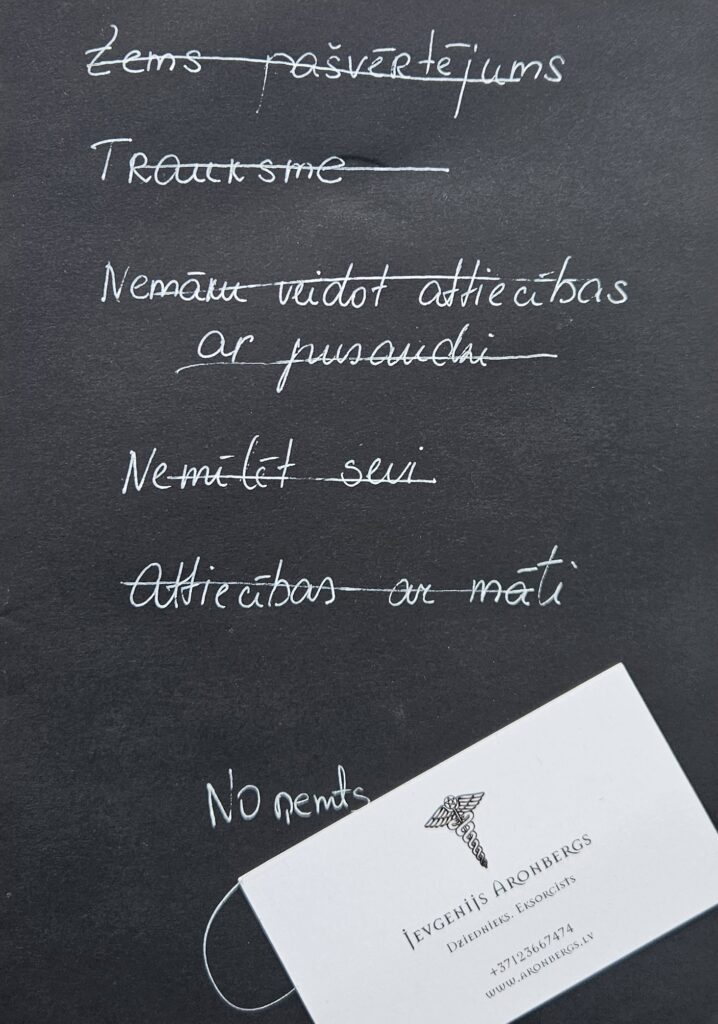 Zems pašvērtējums
Trauksme
Nemāku veidot attiecības
ar pusaudzi
Nemīlēt sevi
Attiecības ar māti
Noņemts
Jevgenijs Aronbergs
Dziednieks. Eksorcists
+37123667474
www.aronbergs.lv